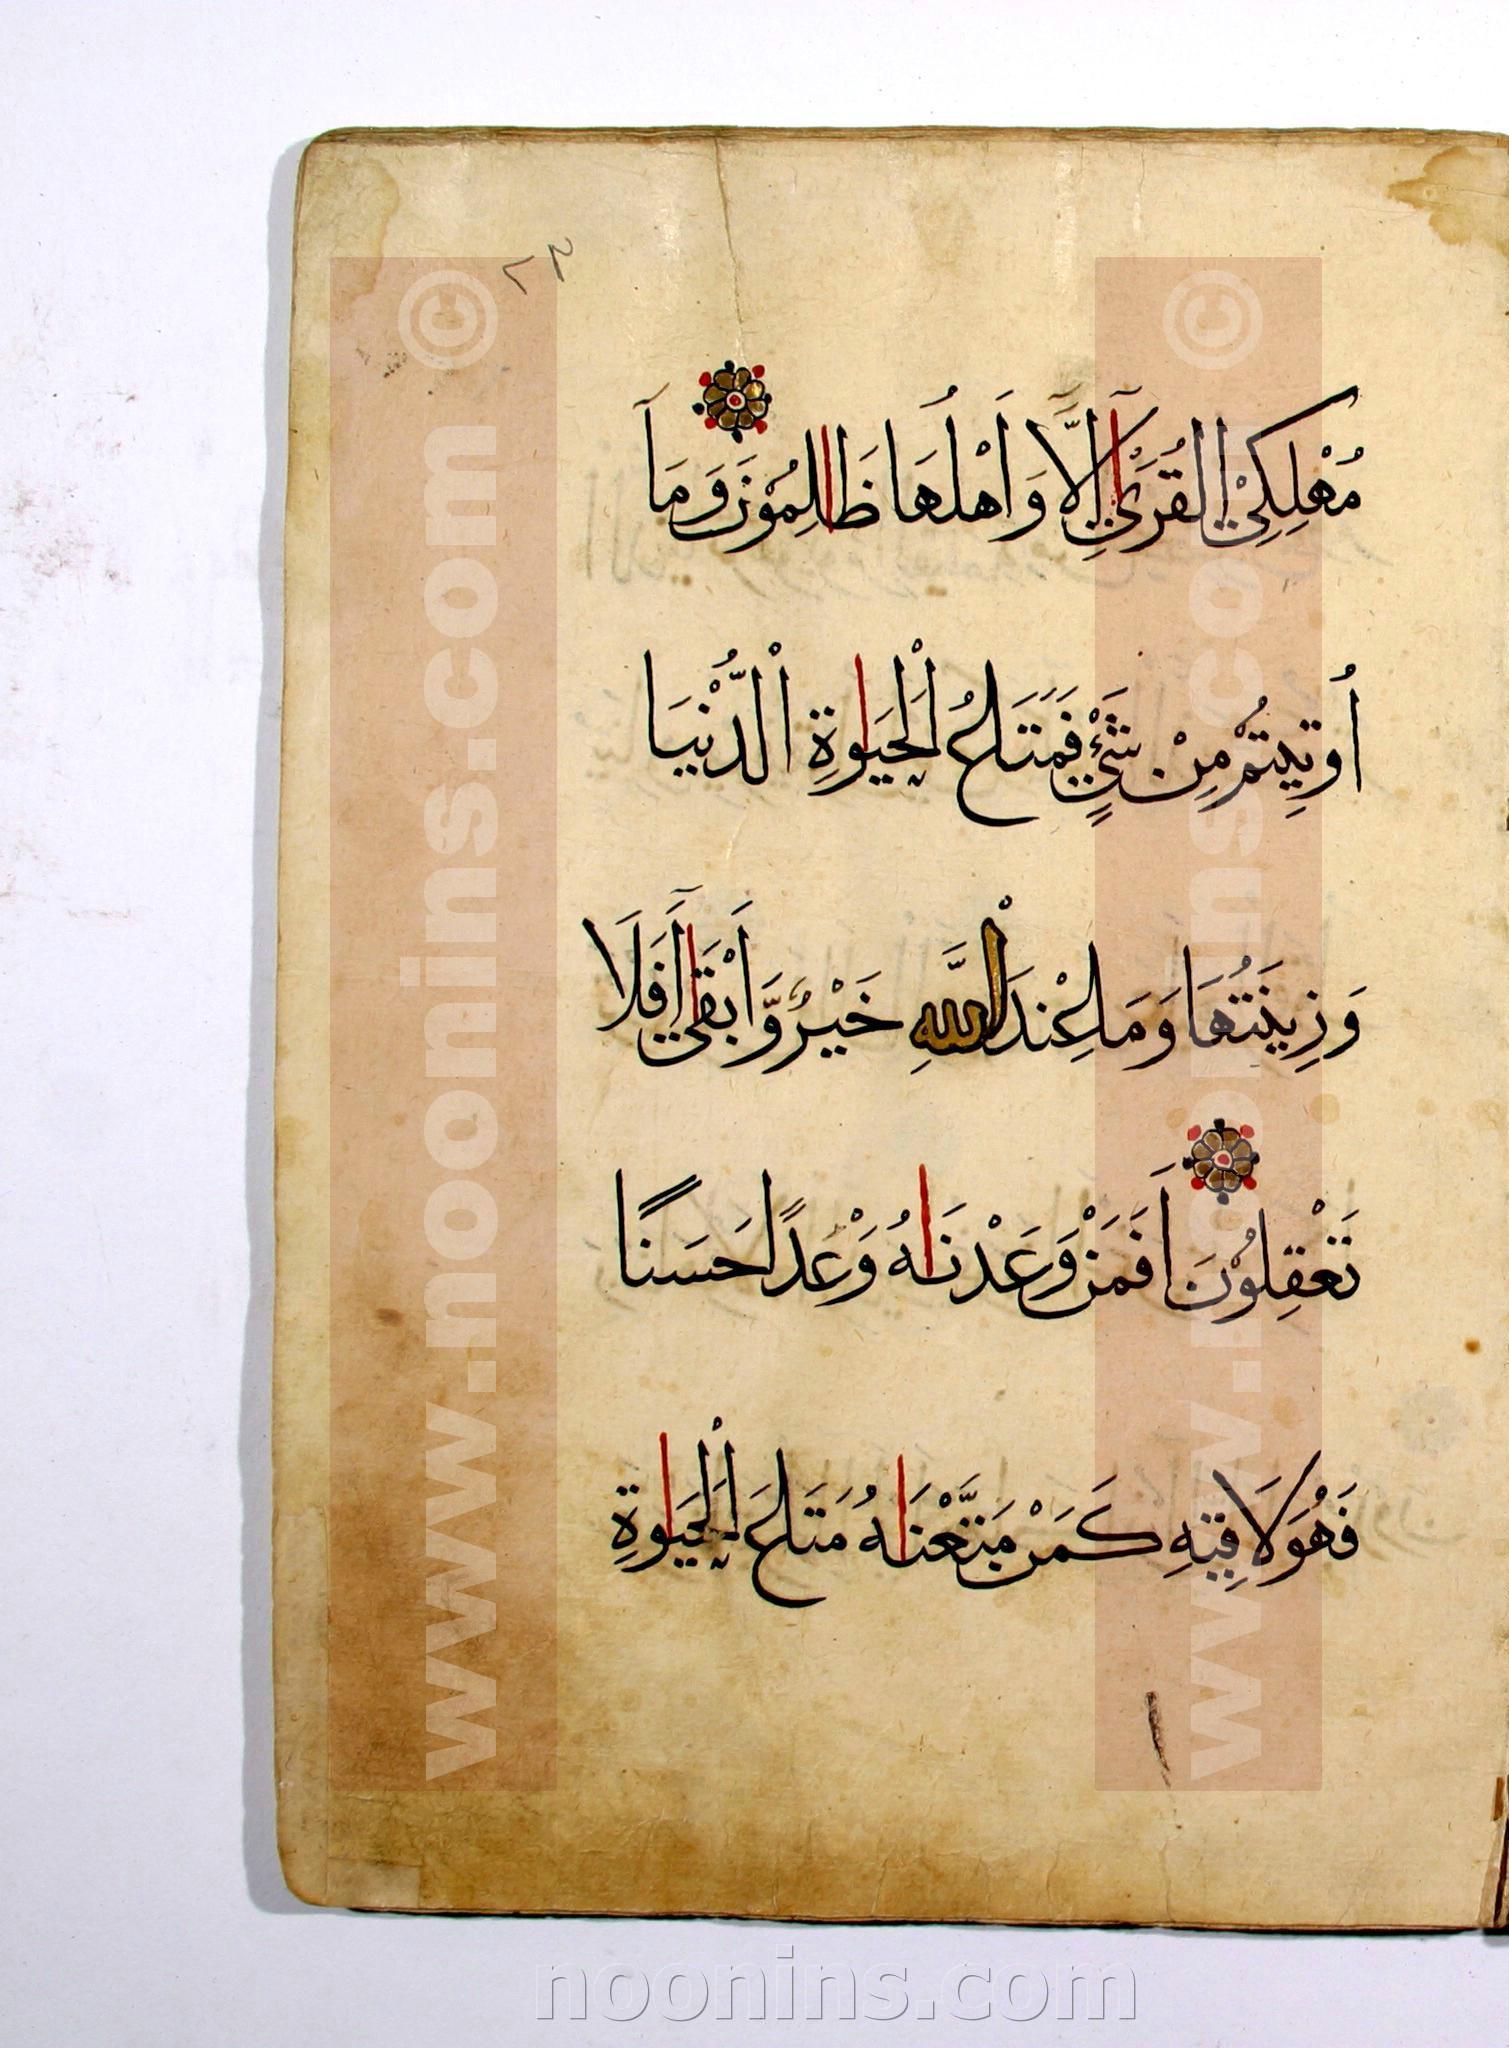 ٢٣
مُهْلِكِى الْقُرَىٰٓ إِلَّا وَأَهْلُهَا ظَالِمُونَ وَمَآ
أُوتِيتُمْ مِنْ شَىْءٍ فَمَتَاعُ الْحَيَاوةِ الدُّنْيَا
وَزِينَتُهَا وَمَا عِنْدَ اللَّهِ خَيْرٌ وَّأَبْقَىٰٓ أَفَلَا
تَعْقِلُونَ أَفَمَنْ وَعَدْنَاهُ وَعْدًا حَسَنًا
فَهُوَ لَاقِيهِ كَمَنْ مَتَّعْنَاهُ مَتَاعَ الْحَيَاوةِ
www.noonins.com ©
www.noonins.com ©
noonins.com